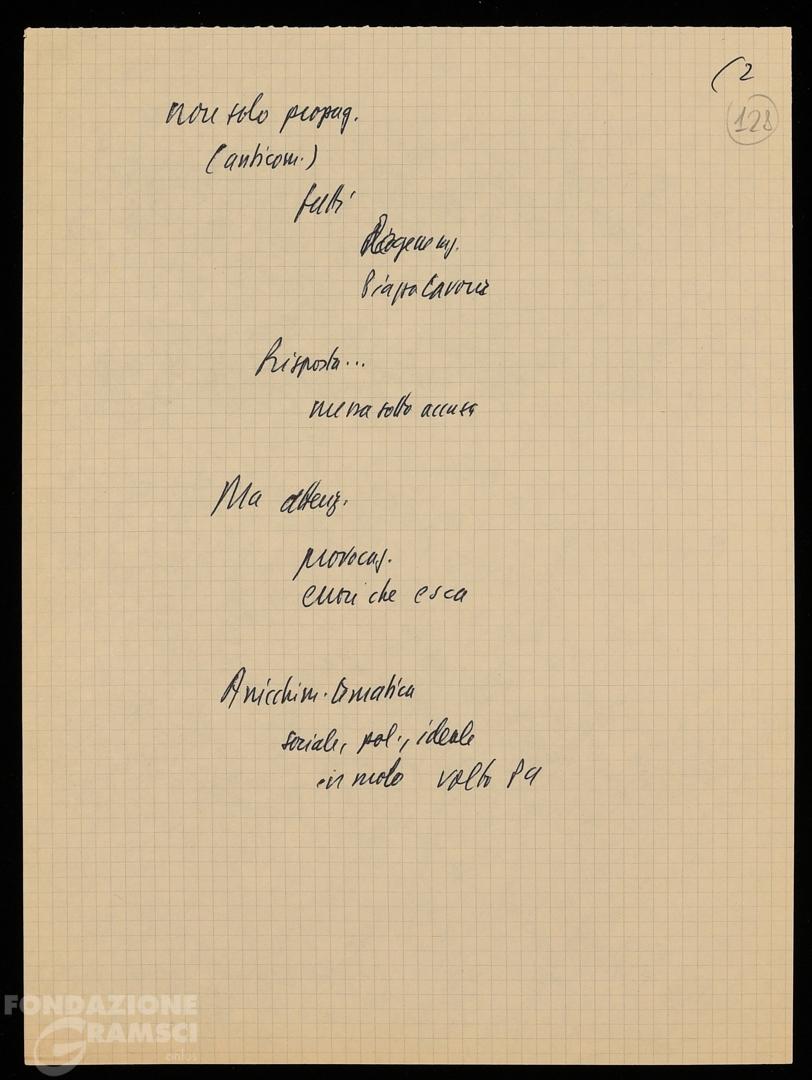 (2
128
non solo propag.
(anticom.)
fatti
Piazza Cavour
Risposta...
messa sotto accusa
Ma attenz.
provocaz.
errori che esca
Arricchim. tematica
sociale, pol., ideale
in modo volto Pa
FONDAZIONE
GRAMSCI
onlus